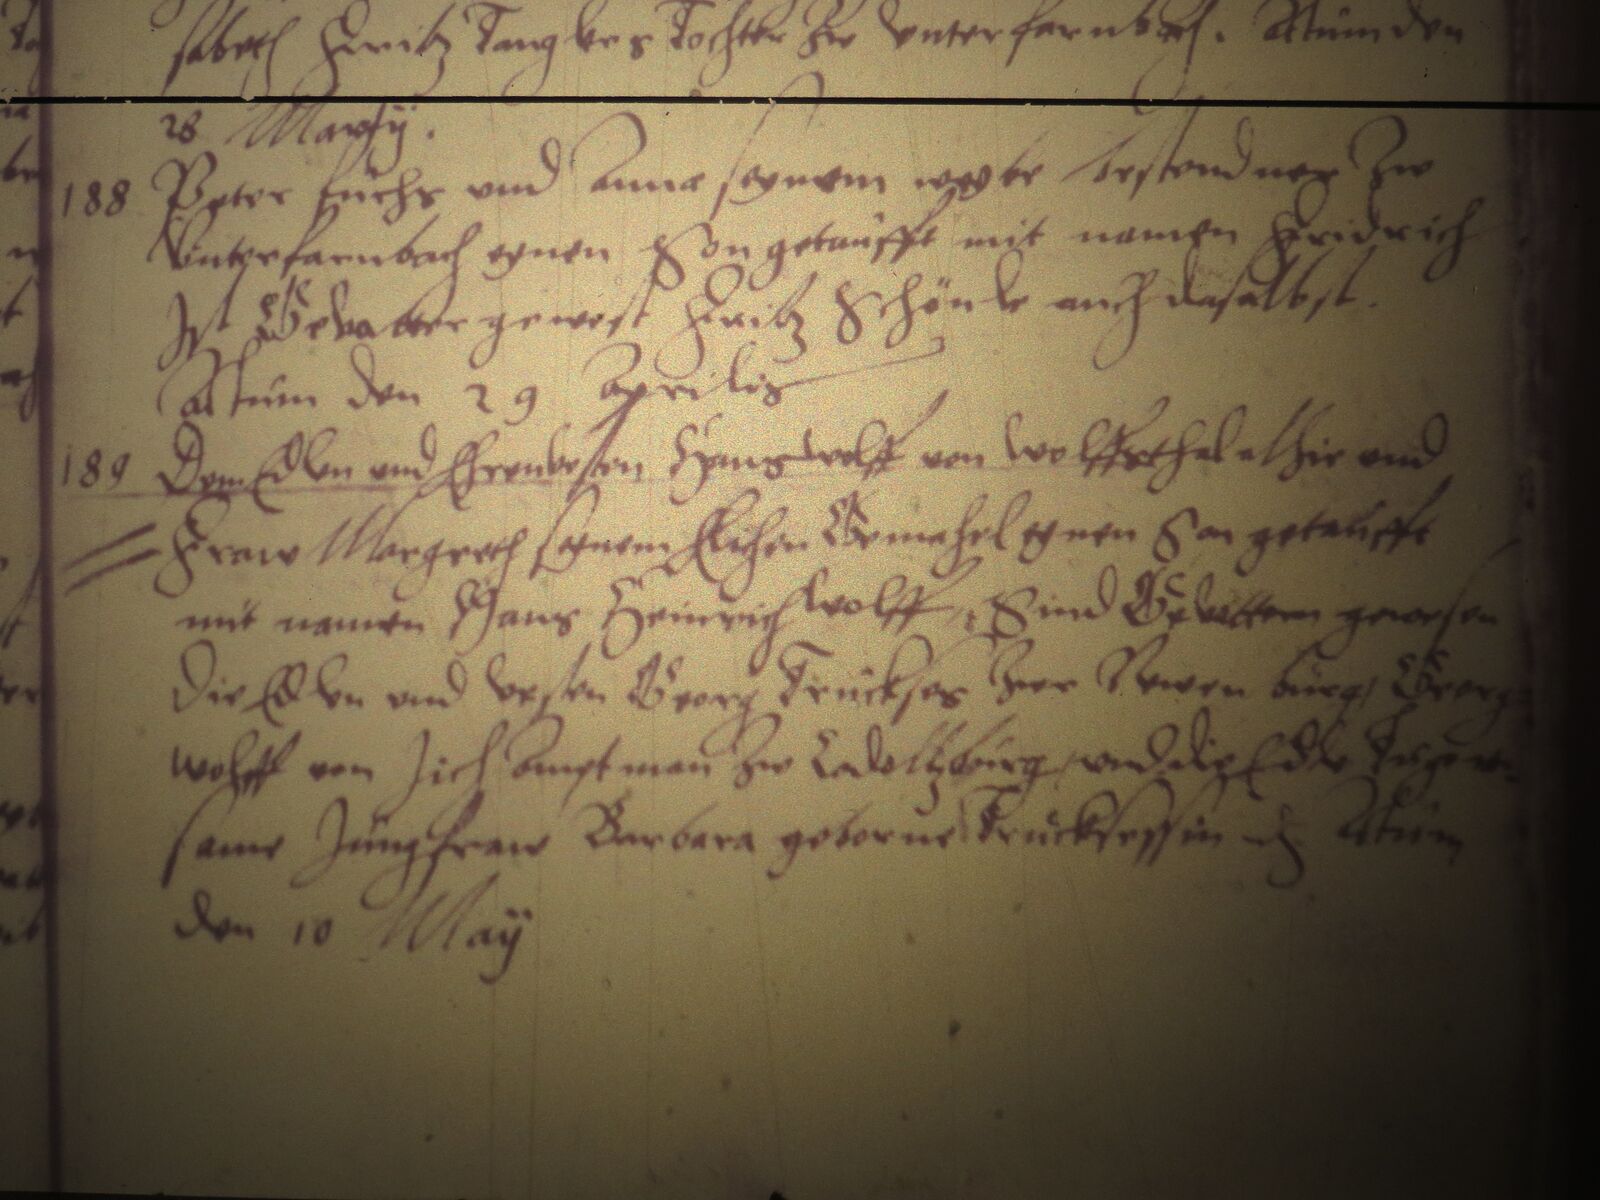 sabeth Fritz Tangbers Tochter zu Unterfarnbach. Actum den
28 Martij.
188 Peter Fuchs und Anna seynem weybe bestendner zu
Unterfarnbach eynen Son getaufft mit namen Fridrich
Ist Gevatter gewest Fritz Schönle auch daselbst.
Actum den 29 Aprilis
189 Dem Edlen und Ehrenvesten Hans Wolff von Wolffsthal alhie und
Fraw Margreth seynem Elichen Gemahel eynen Son getaufft
mit namen Hans Heinrich Wolff, Sind Gevattern gewesen
die Edlen und vesten Georg Truckses zur Newen burg, Georg
Wolff von amptman zu Cadoltzburg, und die Edle Tugent
same Jungfraw Barbara geborne Trucksessin Actum
den 10 Maÿ